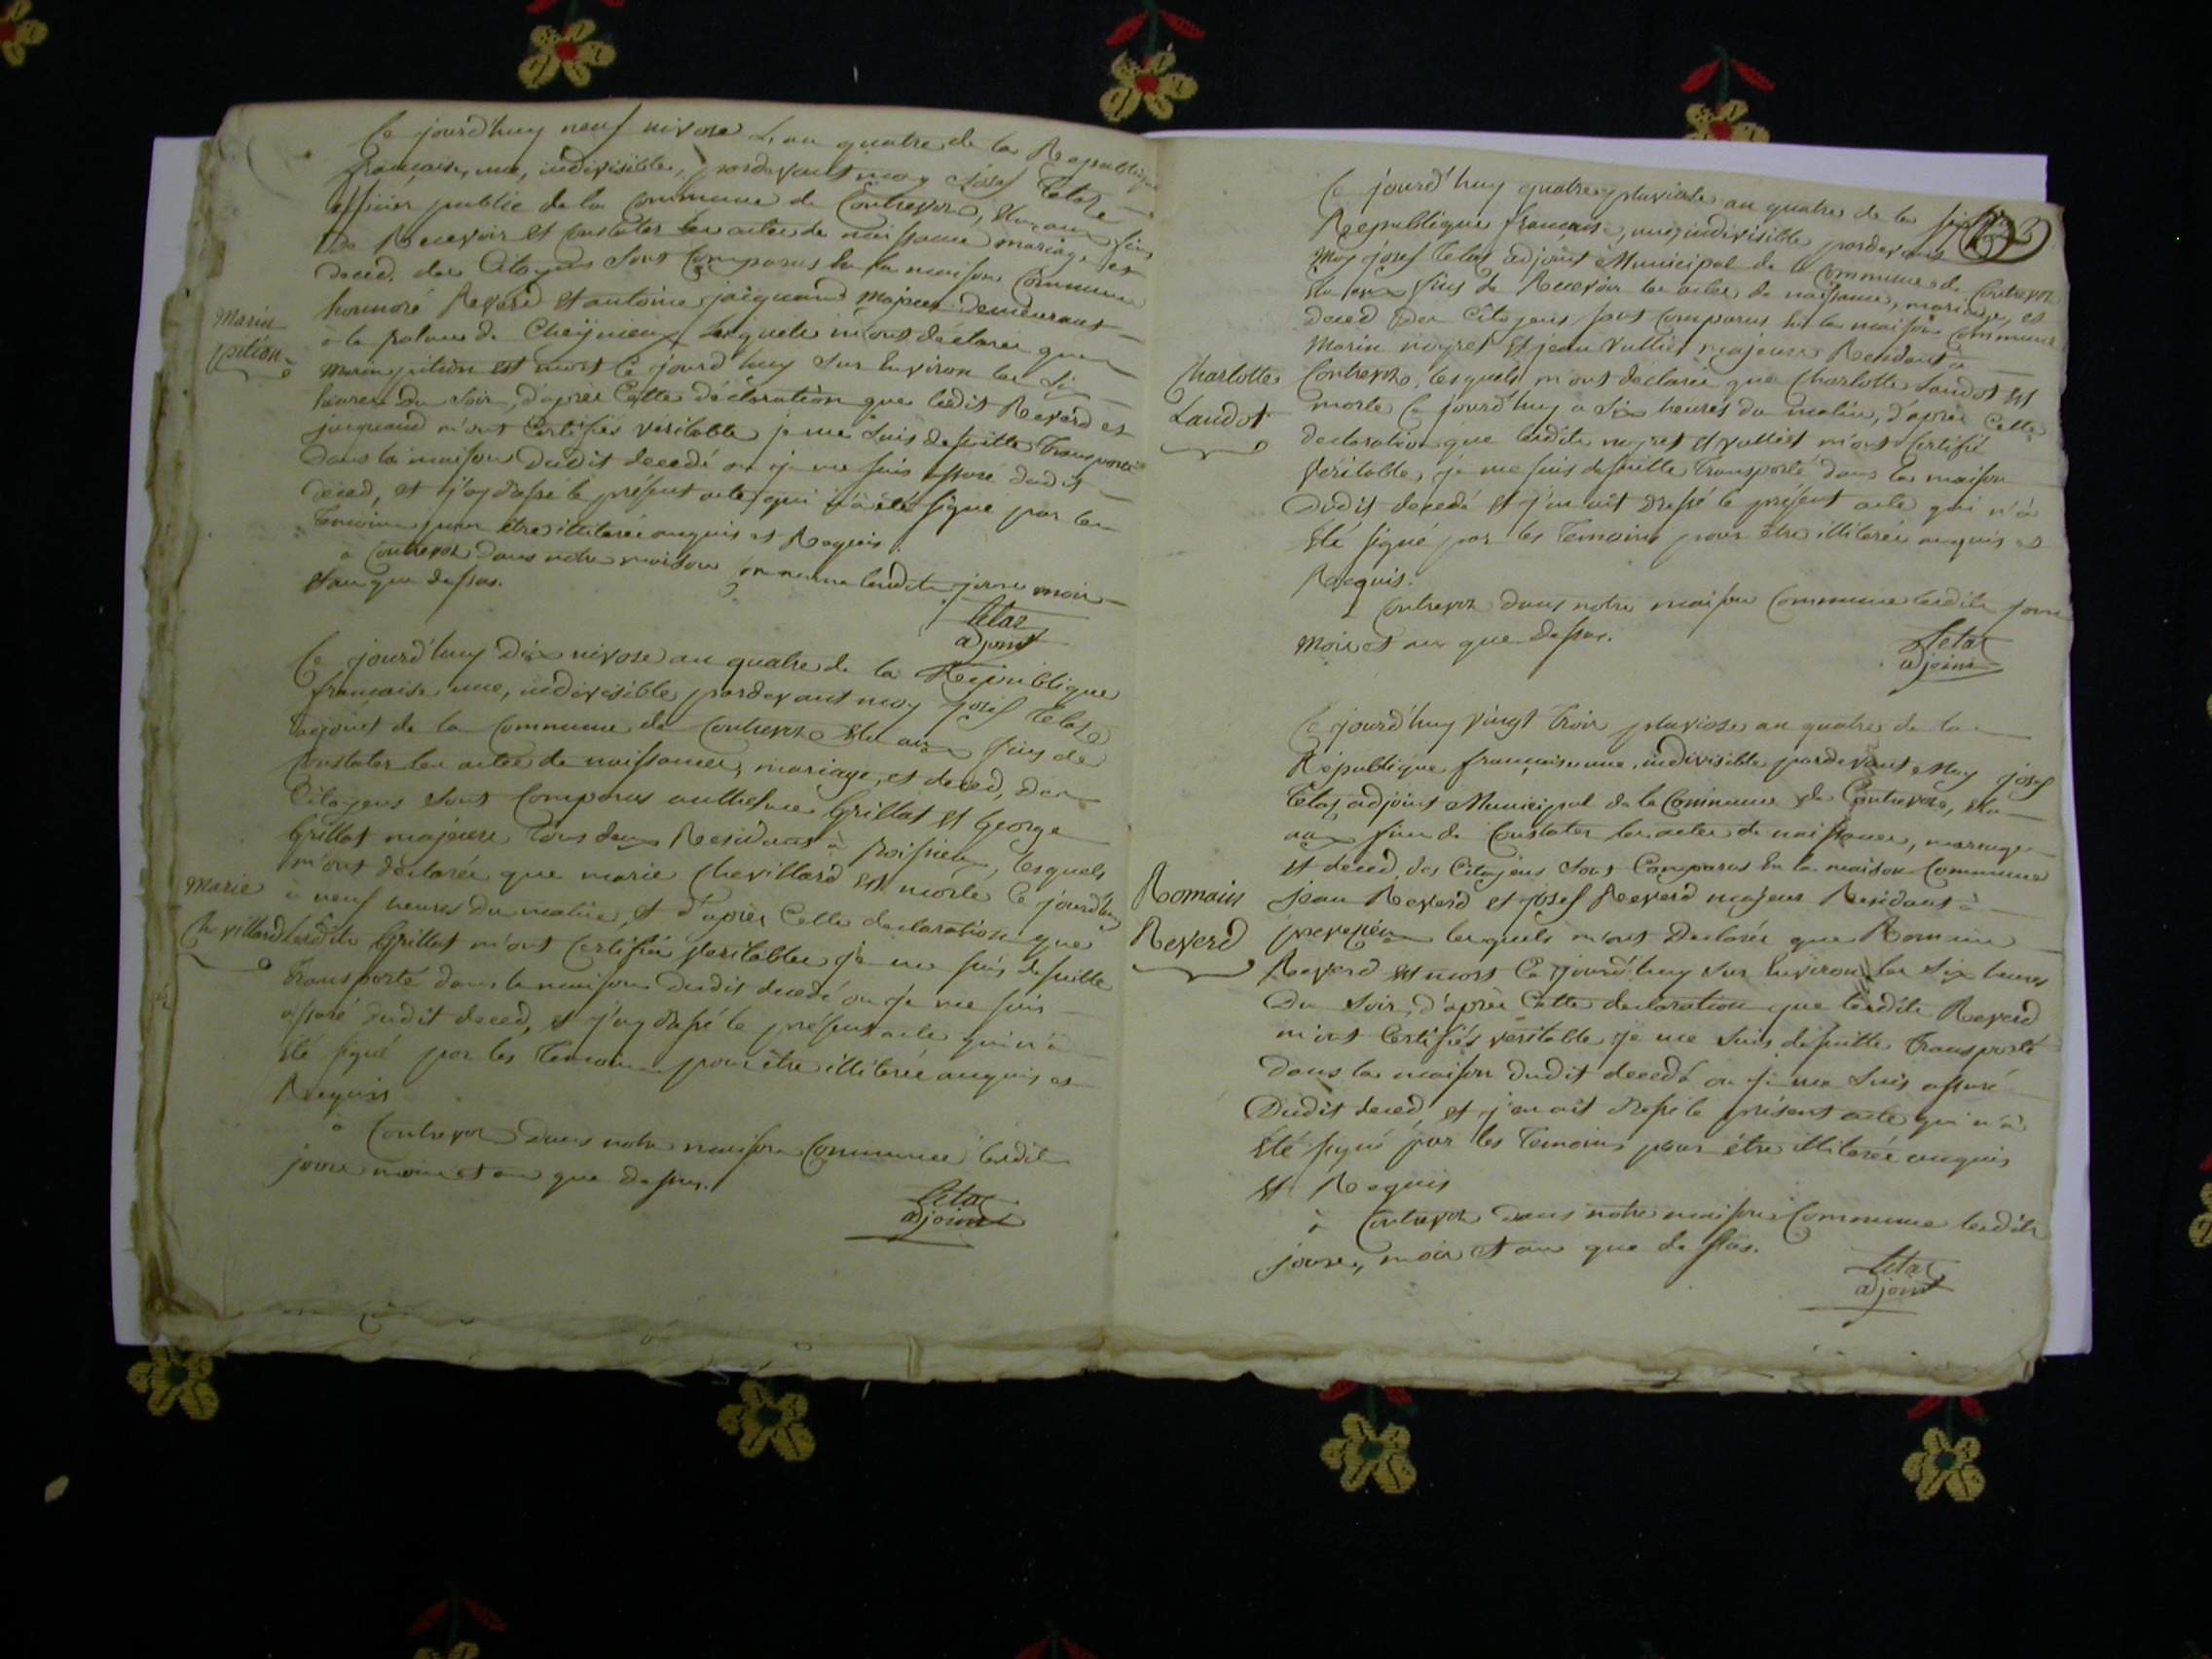 Ce jourd'huy neuf nivose L'an quatre de la Republique
française, une, indivisible, pardevant moy Josef Tetaz
officier public de la Commune de Contrevoz, elu aux fins
de Recevoir et Constater les actes de naissance mariage et
deced. des Citoyens sont Comparus en la maison Commune
honnoré Reverd et antoine jaiquand majeurs demeurants
à la de Cheÿnieux lesquels m'ont déclarée que
Marin
pition
marin pition est mort Ce jourd'huy sur Environ les six
heures du soir, d'après Cette déclaration que lesdit Reverd et
jaiquand m'ont Certifiés véritable je me suis desuitte transporté
Dans la maison Dudit decedé ou je me suis assuré dudit
deced, et j'ay dassé le présent acte, qui n'à été signé par les
temoins pour être illiterée enquis et Requis.
à Contrevoz dans notre maison Commune lesdits jour mois
et an que dessus.
Tetaz
adjoint
Ce jourd'huy Dix nivose an quatre de la République
française une, indivisible pardevant moy josef Tetaz
agoint de la Commune de Contrevoz elu aux fins de
Constater les actes de naissance, mariage, et deced, des
Citoyens sont Comparus anthelme Grillat et George
Grillat majeurs tous deux Residents à Poissieux, lesquels
m'ont déclarée que marie Chevillard est morte Ce jourd'huy
Marie
Chevillard
à neuf heures du matin, et d'après Cette declaration que
lesdits Grillat m'ont Certifiée veritables je me suis desuitte
transporté dans la maison Dudit decedé ou je me suis
assuré dudit deced, et j'ay dassé le présent acte qui n'à
été signé par les temoins pour être illiterée enquis et
Requis
à Contrevoz dans notre maison Commune lesdits
jour mois et an que dessus.
Tetaz
adjoint
Ce jourd'huy quatre pluviose an quatre de la
Republique française, une, indivisible pardevant
Moy josef Tetaz adjoint Municipal de la Commune de Contrevoz
elu aux fins de Recevoir les actes de naissance, mariage, et
deced des Citoyens sont Comparus en la maison Commune
Marin noyret et jean vulliet majeurs Residants à
Charlotte
Laudot
Contrevoz, lesquels m'ont declarée que Charlotte Laudot est
morte Ce jourd'huy a six heures du matin, d'après Cette
declaration que lesdits noyret et vulliet m'ont Certifié
Véritable, je me suis desuitte transporté dans la maison
Dudit decedé et j'en ait dressé le présent acte qui n'à
Eté signé par les temoins pour être illiterée enquis et
Requis.
à Contrevoz dans notre maison Commune lesdits jour
mois et an que dessus.
Tetaz
adjoint
Ce jourd'huy vingt trois pluviose an quatre de la
République française une, indivisible pardevant Moy josef
Tetaz adjoint Municipal de la Commune de Contrevoz, elu
aux fins de Constater les actes de naissance, mariage
et deced, des Citoyens sont Comparus en la maison Commune
Romain
Reverd
jean Reverd et josef Reverd majeur Residant à
preveyzieu lesquels m'ont Declarée que Romain
Reverd est mort Ce jourd'huy sur Environ les six heures
Du soir, d'après Cette declaration que lesdits Reverd
m'ont Certifiés veritable je me suis desuitte transporté
dans la maison dudit decedé ou je me suis assuré
Dudit deced, et j'en ait dressé le présent acte qui n'à
Eté signé par les temoins pour être illiterée enquis
et Requis
à Contrevoz dans notre maison Commune lesdits
jour, mois et an que dessus.
Tetaz
adjoint